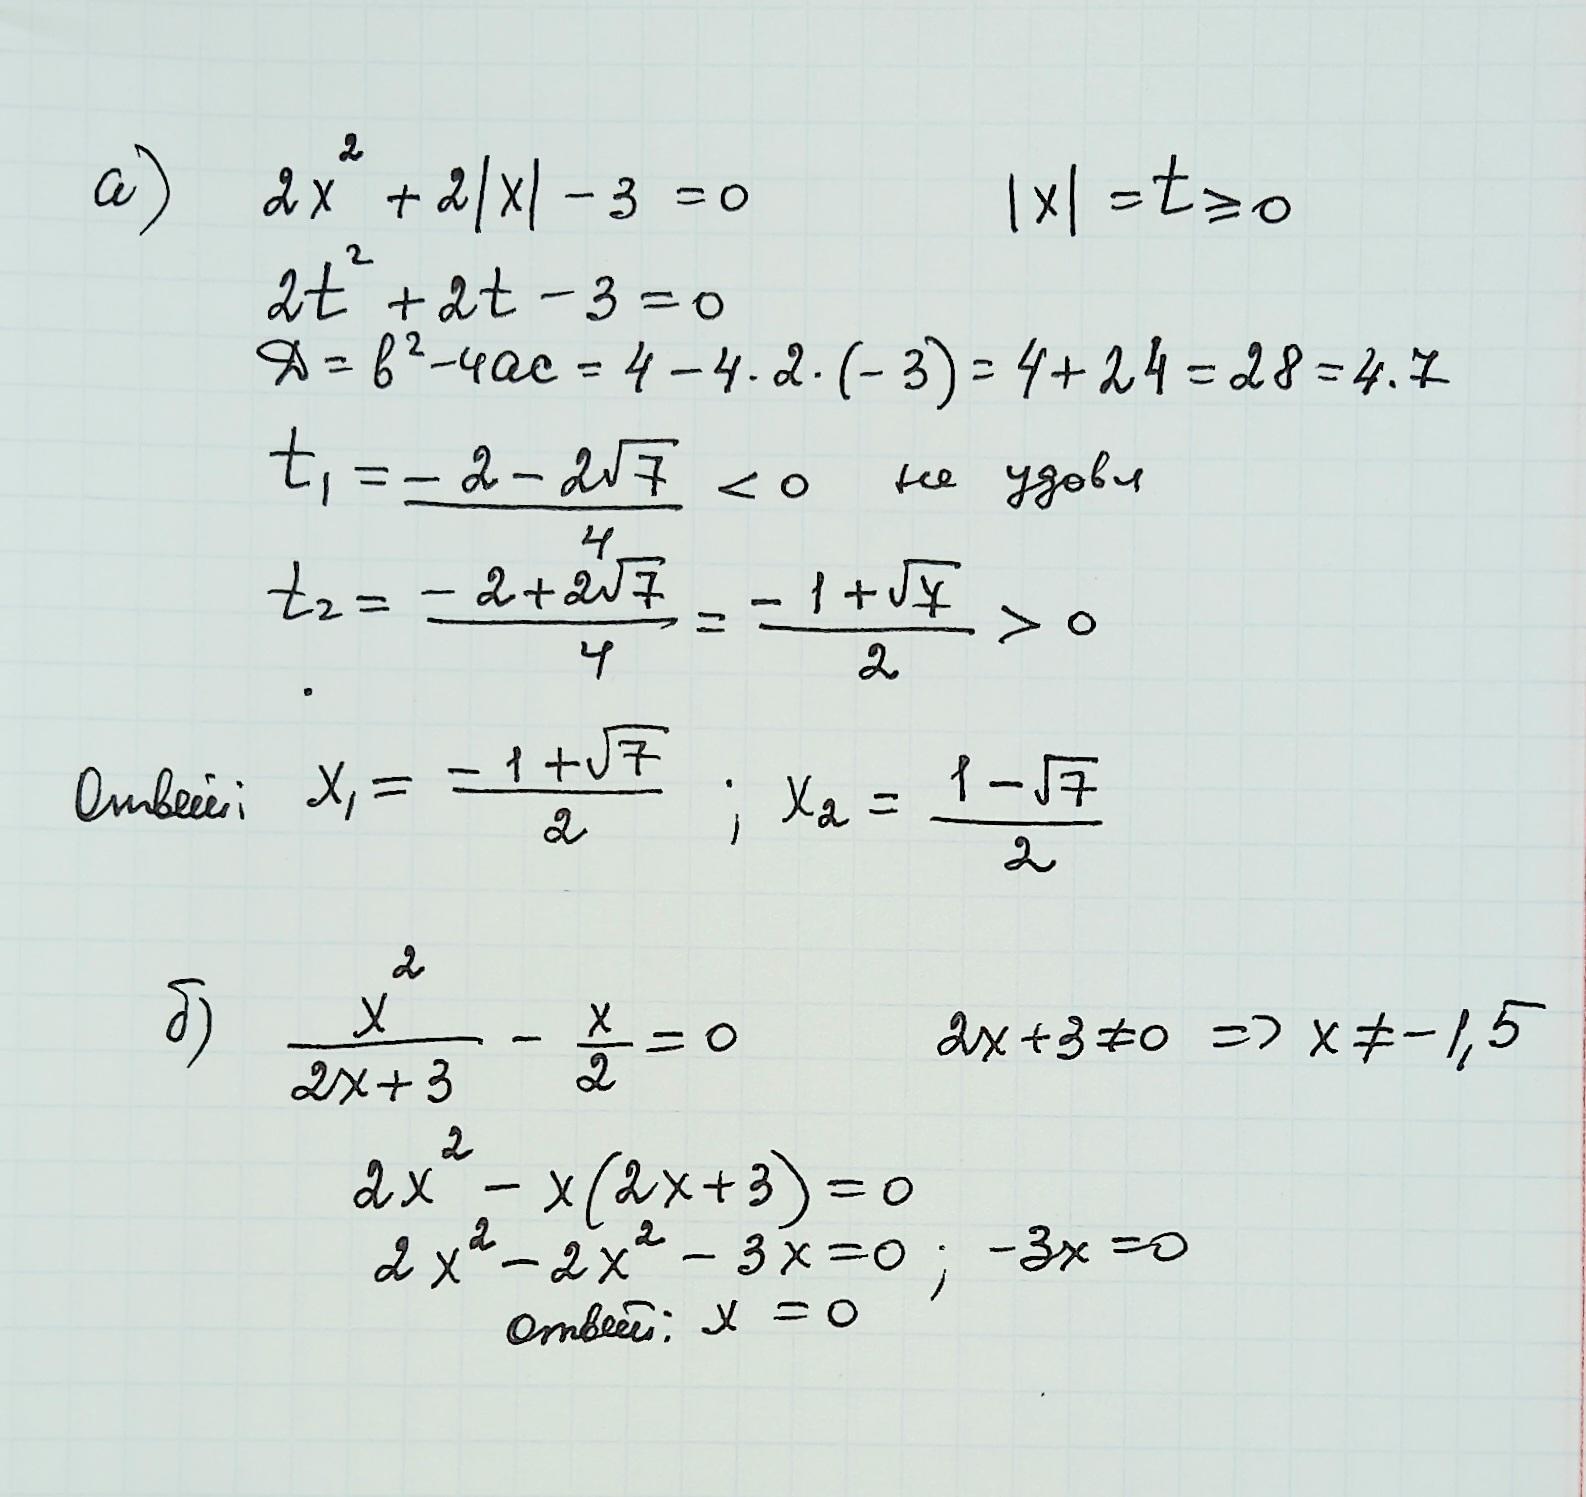 а) 2x² + 2|x| - 3 = 0 |x| = t ≥ 0
2t² + 2t - 3 = 0
D = b² - 4ac = 4 - 4·2·(-3) = 4 + 24 = 28 = 4·7
t₁ = (-2 - 2√7)/4 < 0 не удовл
t₂ = (-2 + 2√7)/4 = (-1 + √7)/2 > 0
Ответ: x₁ = (-1 + √7)/2 ; x₂ = (1 - √7)/2
б) x²/(2x+3) - x/2 = 0 2x + 3 ≠ 0 => x ≠ -1,5
2x² - x(2x+3) = 0
2x² - 2x² - 3x = 0 ; -3x = 0
Ответ: x = 0